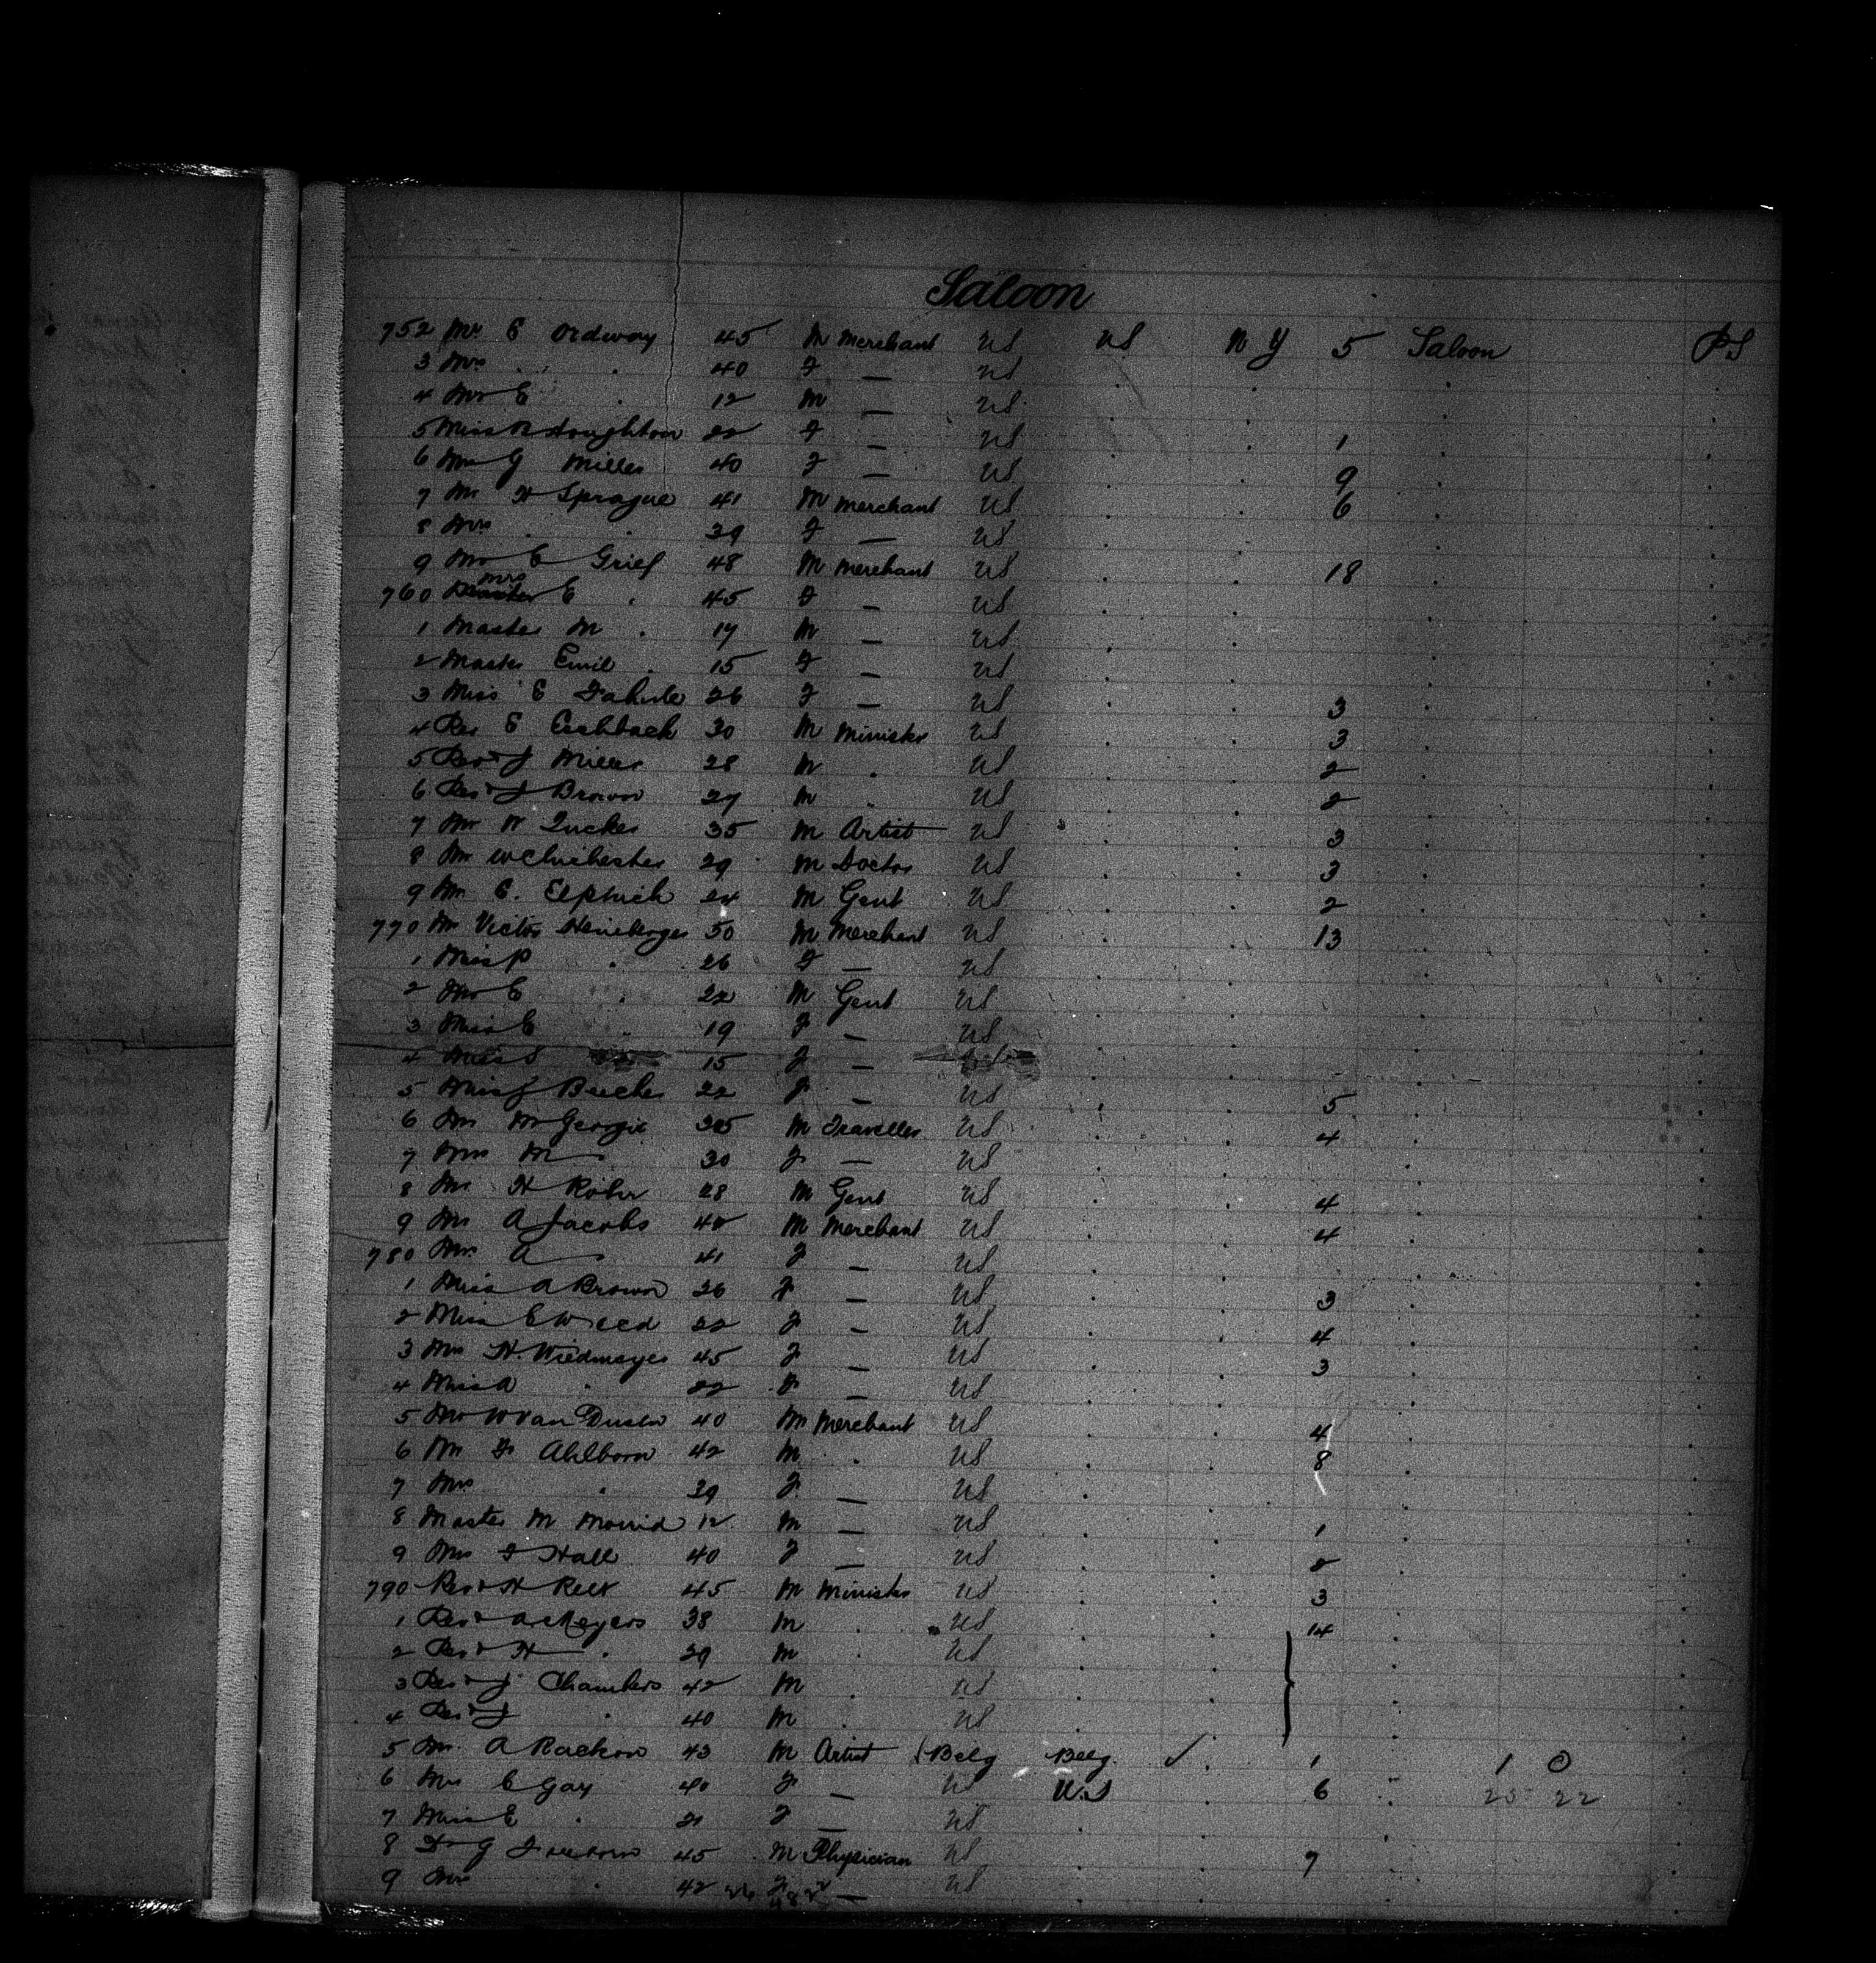 Saloon
752 Mr. E Ordway 45 M Merchant US US N Y 5 Saloon PS
3 Mrs " . 40 F — US
4 Mr E . 12 M — US
5 Miss Houghton 22 F — US 1
6 Mrs G Miller 40 F — US 9
7 Mr H Sprague 41 M Merchant US 6
8 Mrs . 39 F — US
9 Mr E Grief 48 M Merchant US 18
760 Mrs E . 45 F — US
1 Master M . 17 M — US
2 Master Emil . 15 F — US
3 Miss E 26 F — US 3
4 Rev E Eschback 30 M Minister US 3
5 Revd J Miller 28 M " US 2
6 Revd J Brown 27 M " US 2
7 Mr W Tucker 35 M Artist US 3
8 Mr W Chichester 29 M Doctor US 3
9 Mr E. 24 M Gent US 2
770 Mr Victor Heineberger 50 M Merchant US 13
1 Miss P . 26 F — US
2 Mr E . 22 M Gent US
3 Miss E " 19 F — US
4 Miss S 15 F —
5 Miss J 22 F — US 5
6 Mr M Georgie M Traveller US 4
7 Mrs M — 30 F — US
8 Mr H 28 M Gent US 4
9 Mr A Jacobs M Merchant US 4
780 Mrs A — 41 F — US
1 Miss A Brown 26 F — US 3
2 Miss E Weed 22 F — US 4
3 Mrs H. Wiedmayer 45 F — US 3
4 Miss A " 22 F — US
5 Mr W Van Dusen 40 M Merchant US 4
6 Mr F Ahlborn 42 M " US 8
7 Mrs " 39 F — US
8 Master M 12 M — US 1
9 Mrs F Hall 40 F — US 2
790 Revd H 45 M Minister US 3
1 Revd A Meyers 38 M . US 14
2 Revd H . 29 M . US
3 Revd J Chambers 42 M . US
4 Revd J " 40 M . US
5 Mr. A 43 M Artist Belg Belg. ✓ 1 1 0
6 Mrs E Gay 40 F — US U.S 6 25 22
7 Miss E " 21 F — US
8 Dr G 45 M Physician US 7
9 Mrs " 42 F — US